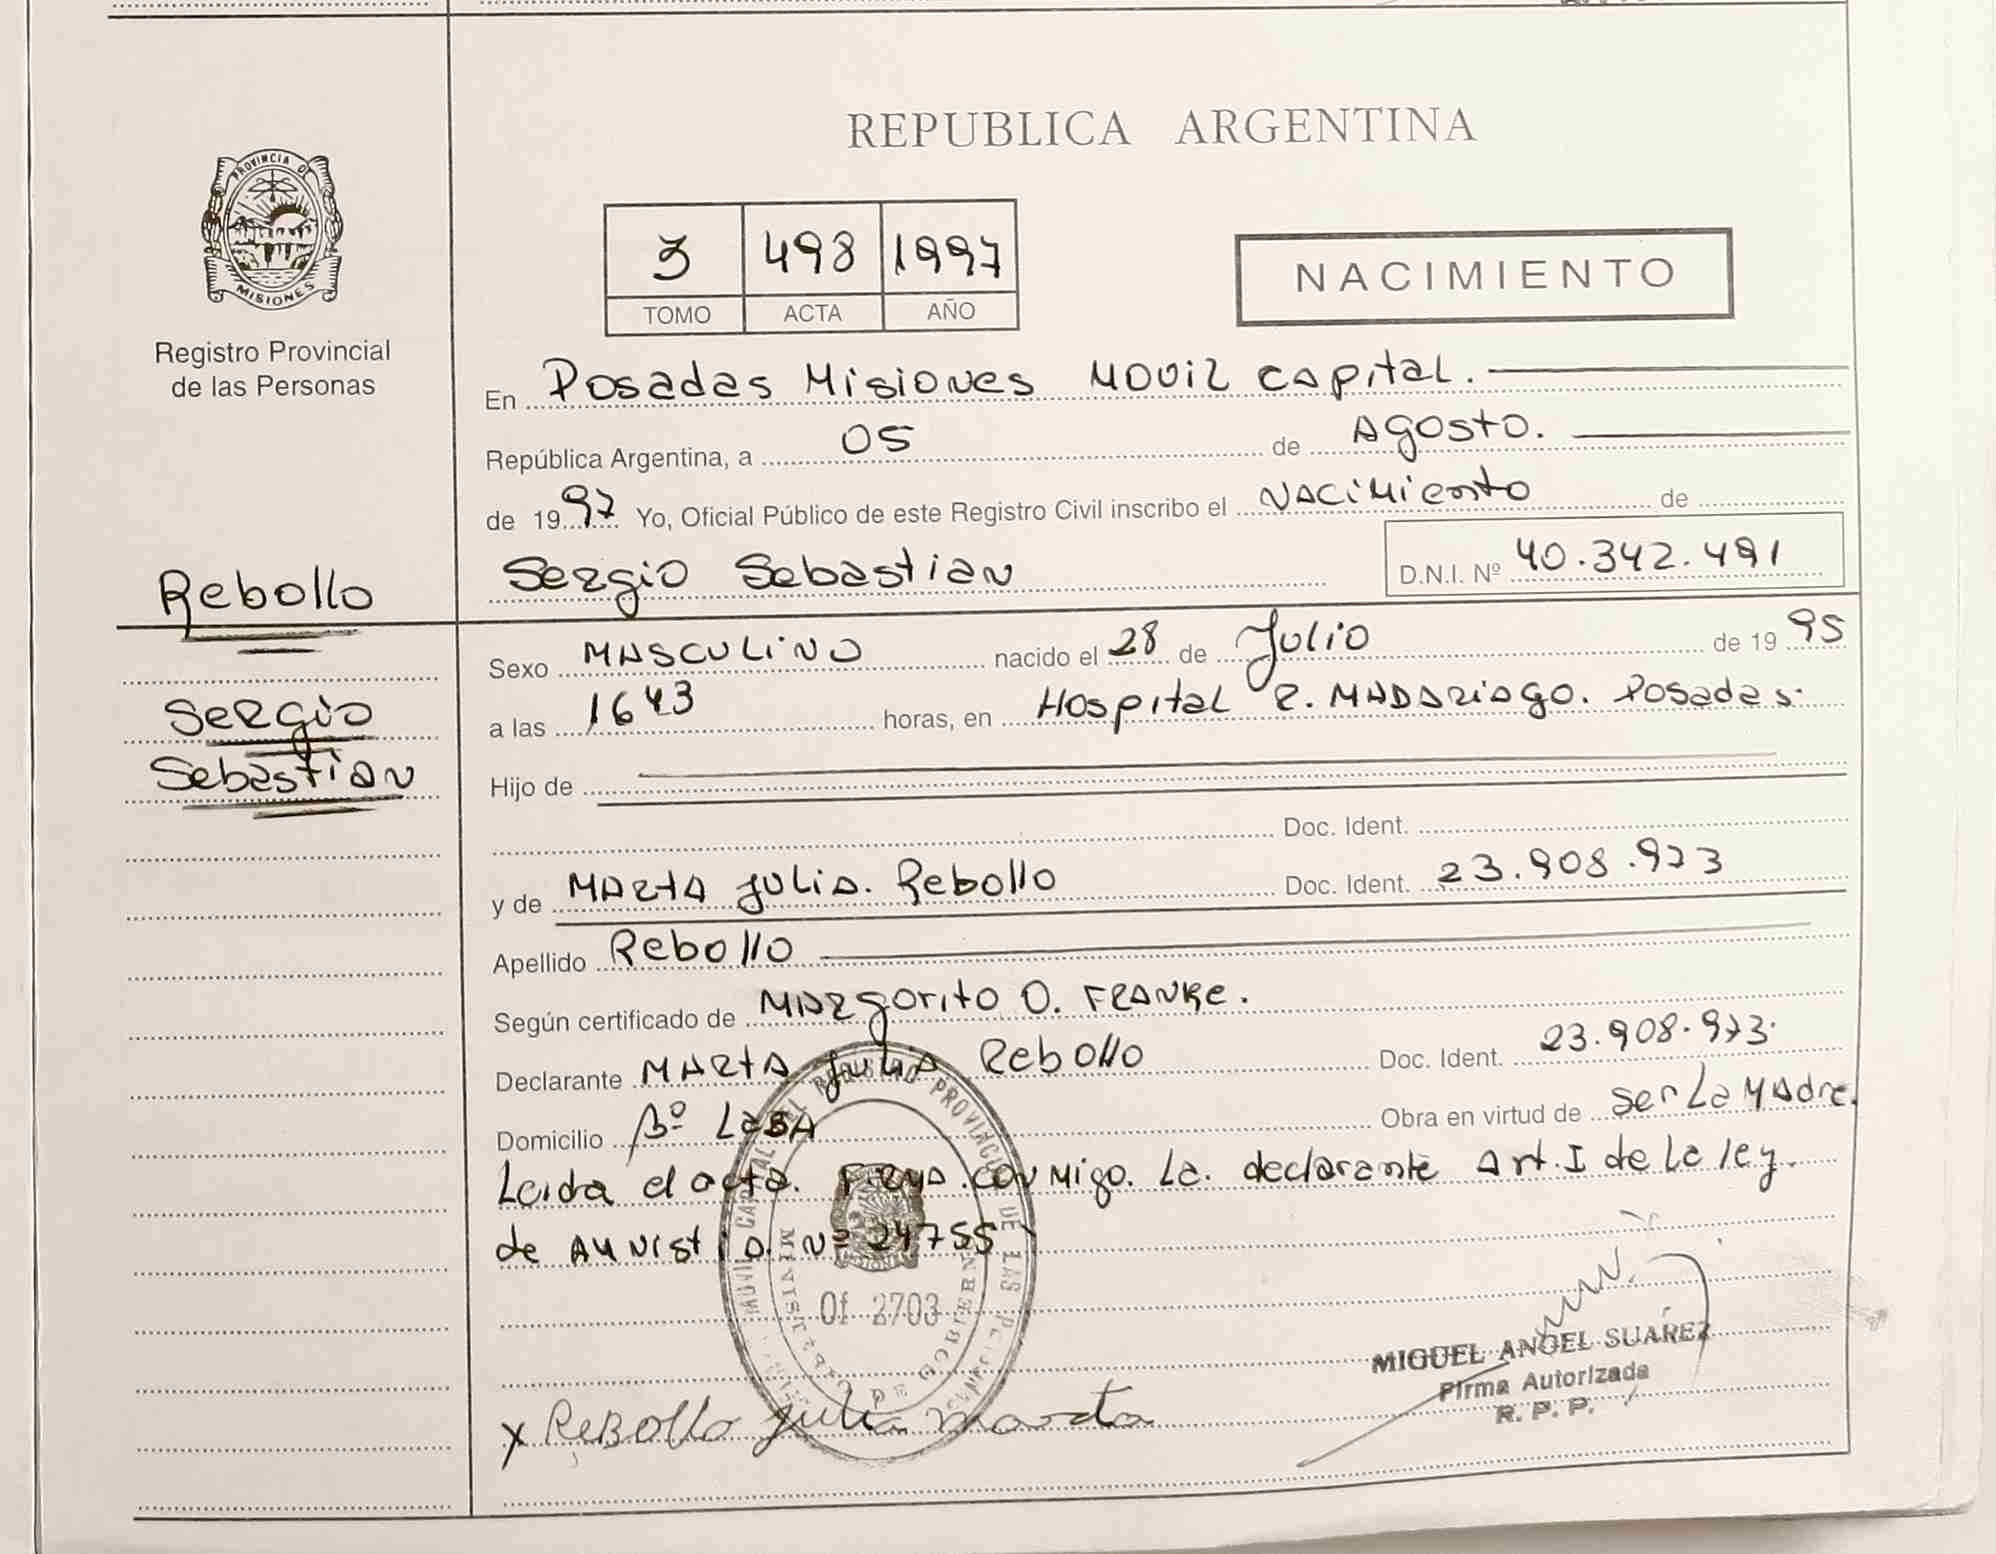 REPUBLICA ARGENTINA
PROVINCIA DE
MISIONES
Registro Provincial
de las Personas
3 498 1997
TOMO ACTA AÑO
NACIMIENTO
En Posadas Misiones Movil Capital.
República Argentina, a 05 de Agosto.
de 1997 Yo, Oficial Público de este Registro Civil inscribo el Nacimiento de
Sergio Sebastian D.N.I. Nº 40.342.491
Rebollo
Sergio
Sebastian
Sexo Masculino nacido el 28 de Julio de 1995
a las 1643 horas, en Hospital R. Madariaga. Posadas.
Hijo de
Doc. Ident.
y de Marta Julia. Rebollo Doc. Ident. 23.908.973
Apellido Rebollo
Según certificado de Margarita O. Franke.
Declarante Marta Julia Rebollo Doc. Ident. 23.908.973.
Domicilio Bº Obra en virtud de ser La Madre.
Leida el acta. Firma conmigo. La. declarante Art. I de La ley.
de Amnistia. Nº 24755
Of 2703
MIGUEL ANGEL SUAREZ
Firma Autorizada
R. P. P.
x Rebollo Julia Marta